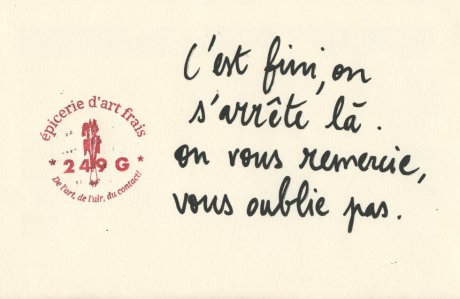 épicerie d'art frais
* 249 G *
De l'art, de l'air, du contact!
C'est fini, on
s'arrête là.
on vous remercie,
vous oublie pas.